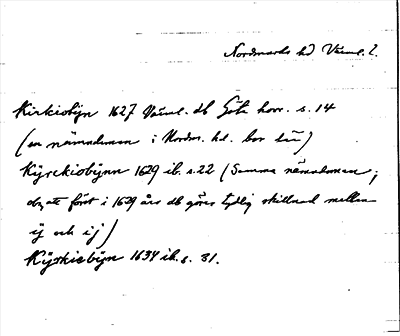 Nordmarks hd Värml. l.
Kirkiobÿn 1627 Värml. db Göta hovr. s. 14
(en nämndeman i Nordm. hd. bor där)
Kÿrckiobÿnn 1629 ib. s. 22 (Samma nämndeman;
obs. att först i 1629 års db göres tydlig skillnad mellan
ij och ÿ)
Kÿrkiebÿn 1634 ib. s. 31.